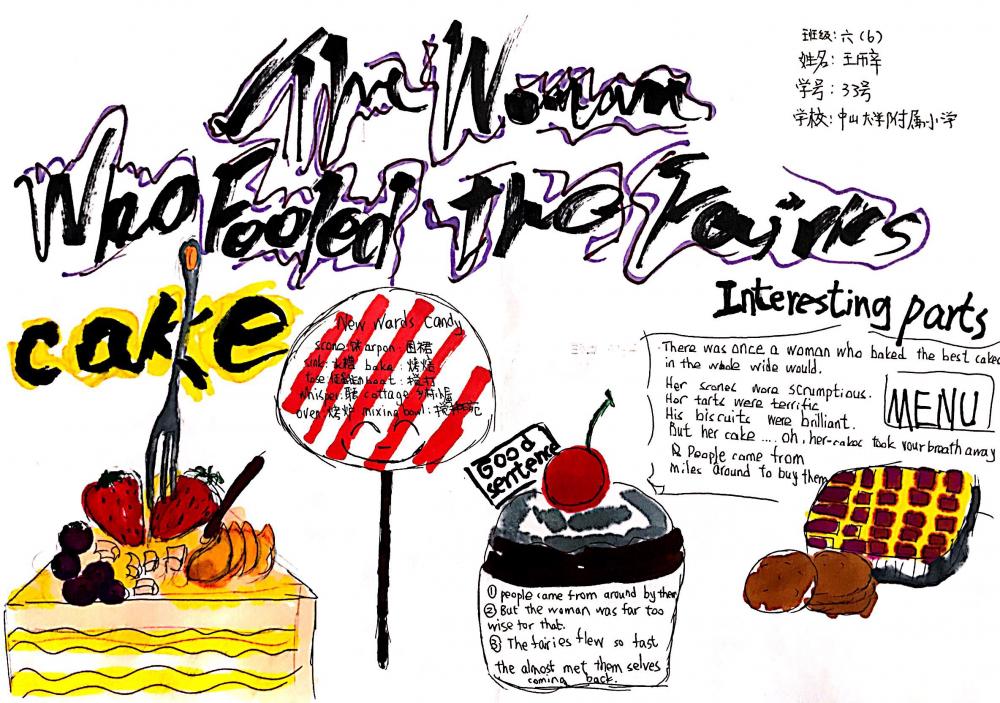 The Woman
Who Fooled the Fairies
班级：六（6）
姓名：王
学号：33号
学校：中山大学附属小学
cake
New Wards Candy
scone: arpon：围裙
sink：水槽 bake：烤焙
boat：搅打
whisper： cottage：乡村小屋
oven：烧炉 mixing bowl：
Interesting parts
There was once a woman who baked the best cakes
in the whole wide would.
Her scones wore scrumptious.
Hor tarts were terrific
His biscuits were brilliant.
But her cake .... oh. her cakes took your breath away
People came from
miles around to buy them
MENU
Good
sentence
① people came from around by ther
② But the woman was far too
wise tor that.
③ The fairies flew so fast
the almost met them selves
coming back.